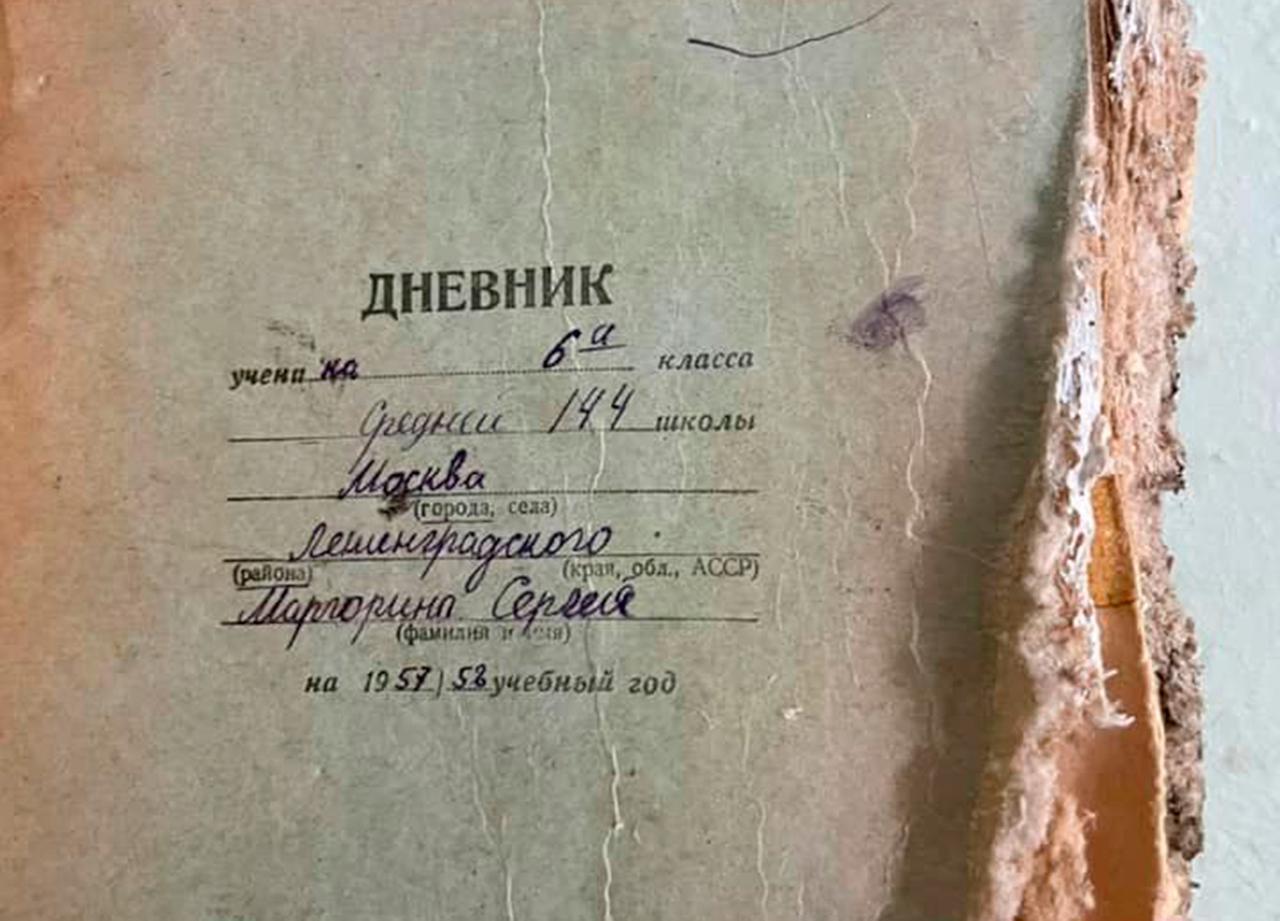 ДНЕВНИК
ученика 6 "а" класса
Средней 144 школы
Москва
(города, села)
Ленинградского
(района) (края, обл., АССР)
Маргорина Сергея
(фамилия и имя)
на 1957/58 учебный год